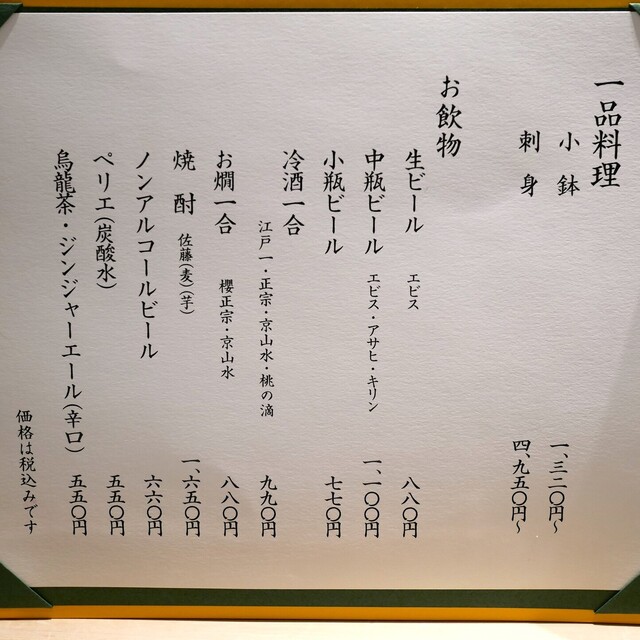 一品料理
小鉢 一、三二〇円〜
刺身 四、九五〇円〜
お飲物
生ビール エビス 八八〇円
中瓶ビール エビス・アサヒ・キリン 一、一〇〇円
小瓶ビール 七七〇円
冷酒一合 江戸一・正宗・京山水・桃の滴 九九〇円
お燗一合 櫻正宗・京山水 八八〇円
焼酎 佐藤(麦)(芋) 一、六五〇円
ノンアルコールビール 六六〇円
ペリエ(炭酸水) 五五〇円
烏龍茶・ジンジャーエール(辛口) 五五〇円
価格は税込みです